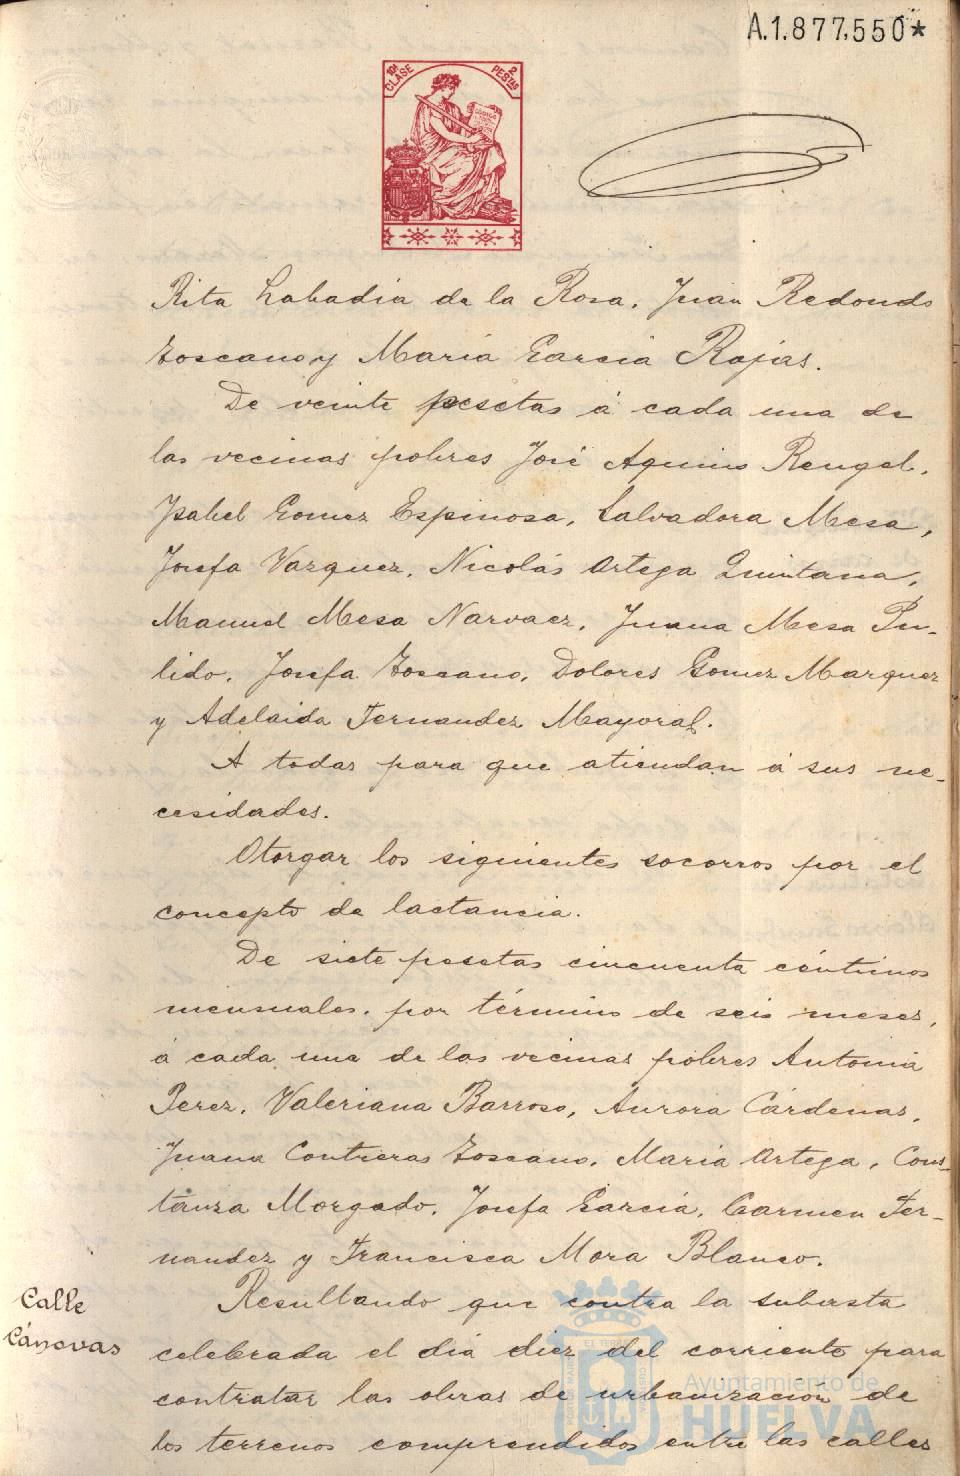 A.1.877,550*
10ª CLASE
2 PESTAS
Rita Labadia de la Rosa, Juan Redondo
Toscano y María García Rojas.
De veinte pesetas á cada una de
las vecinas pobres José Aquino Rengel,
Ysabel Gomez Espinosa, Salvadora Mesa,
Josefa Vazquez, Nicolás Ortega Quintana,
Manuel Mesa Narvaez, Juana Mesa Pu-
lido, Josefa Toscano, Dolores Gomez Marquez
y Adelaida Fernandez Mayoral.
A todas para que atiendan á sus ne-
cesidades.
Otorgar los siguientes socorros por el
concepto de lactancia.
De siete pesetas cincuenta céntimos
mensuales, por término de seis meses,
á cada una de las vecinas pobres Antonia
Perez, Valeriana Barroso, Aurora Cárdenas,
Juana Contreras Toscano, María Ortega, Cons-
tanza Morgado, Josefa García, Carmen Fer-
nandez y Francisca Mora Blanco.
Calle
Cánovas
Resultando que contra la subasta
celebrada el día diez del corriente para
contratar las obras de urbanización de
los terrenos comprendidos entre las calles
Ayuntamiento de
HUELVA